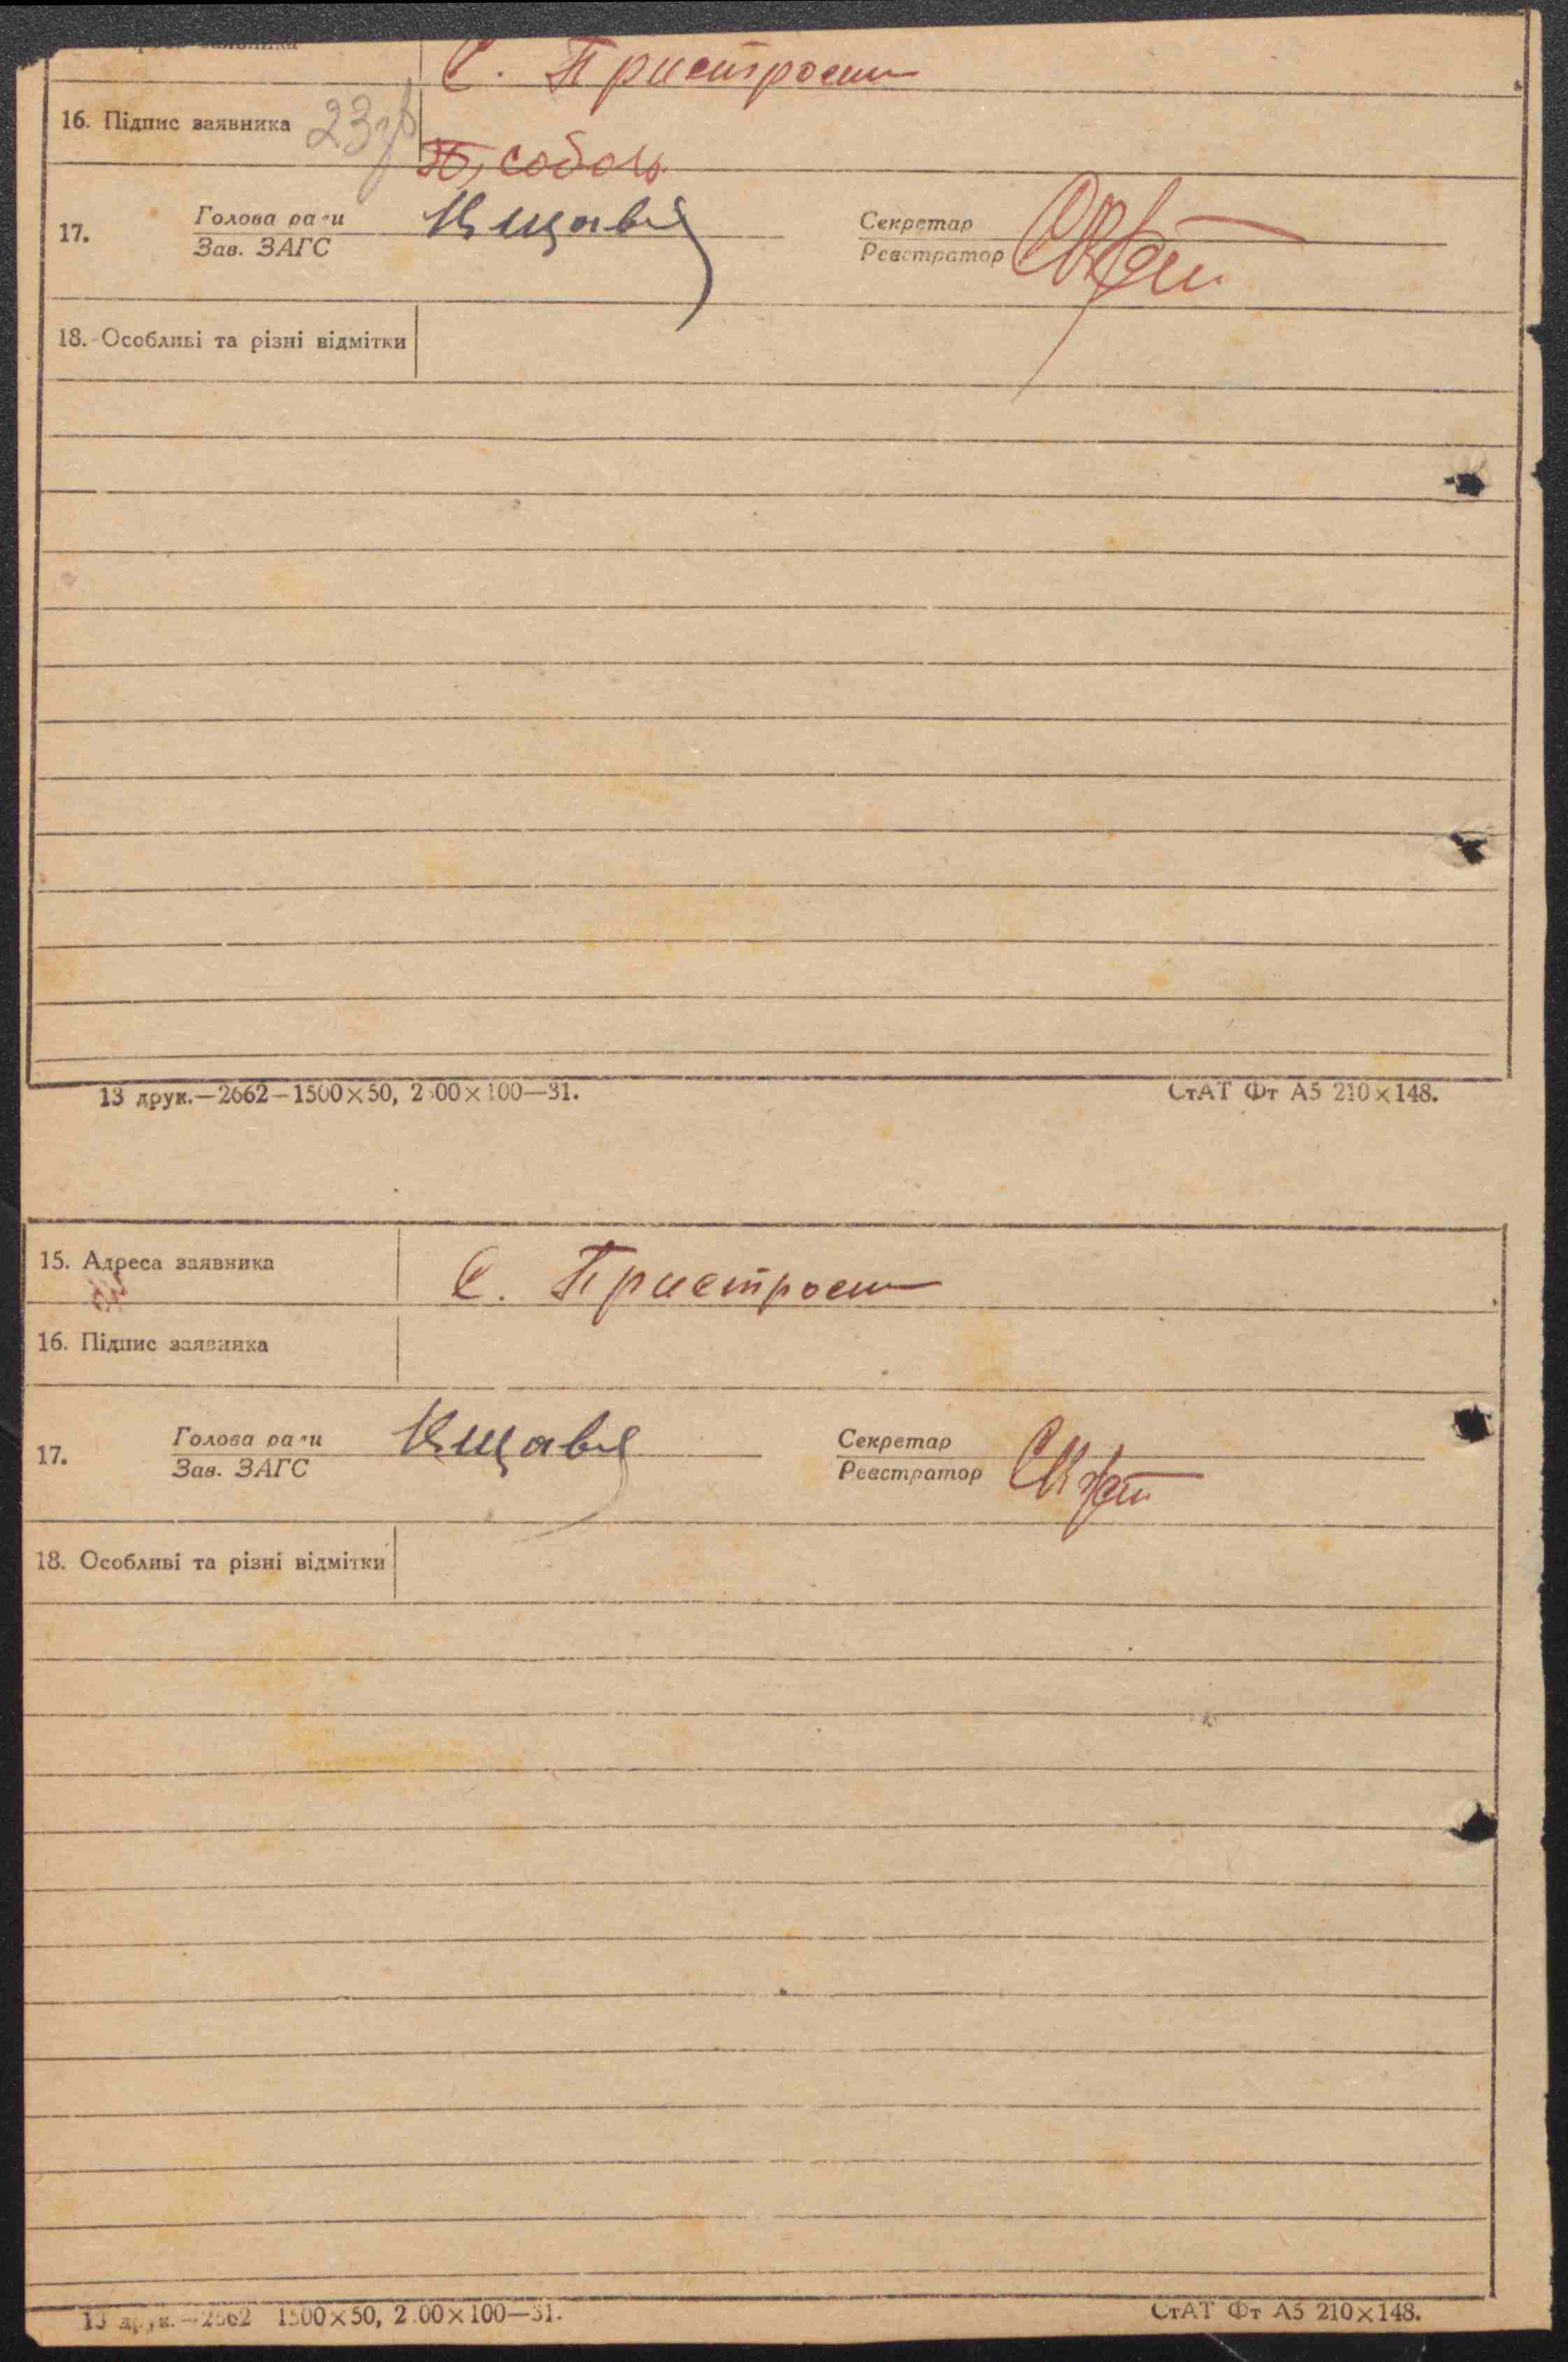 заявника С. Пристроєм
16. Підпис заявника 23 соболь
17. Голова ради Секретар
Зав. ЗАГС Реєстратор
18. Особливі та різні відмітки
13 друк.—2662—1500×50, 2 00×100—31. СтАТ Фт А5 210×148.
15. Адреса заявника С. Пристроєм
16. Підпис заявника
17. Голова ради Секретар
Зав. ЗАГС Реєстратор
18. Особливі та різні відмітки
13 друк.—2662 1500×50, 2 00×100—31. СтАТ Фт А5 210×148.